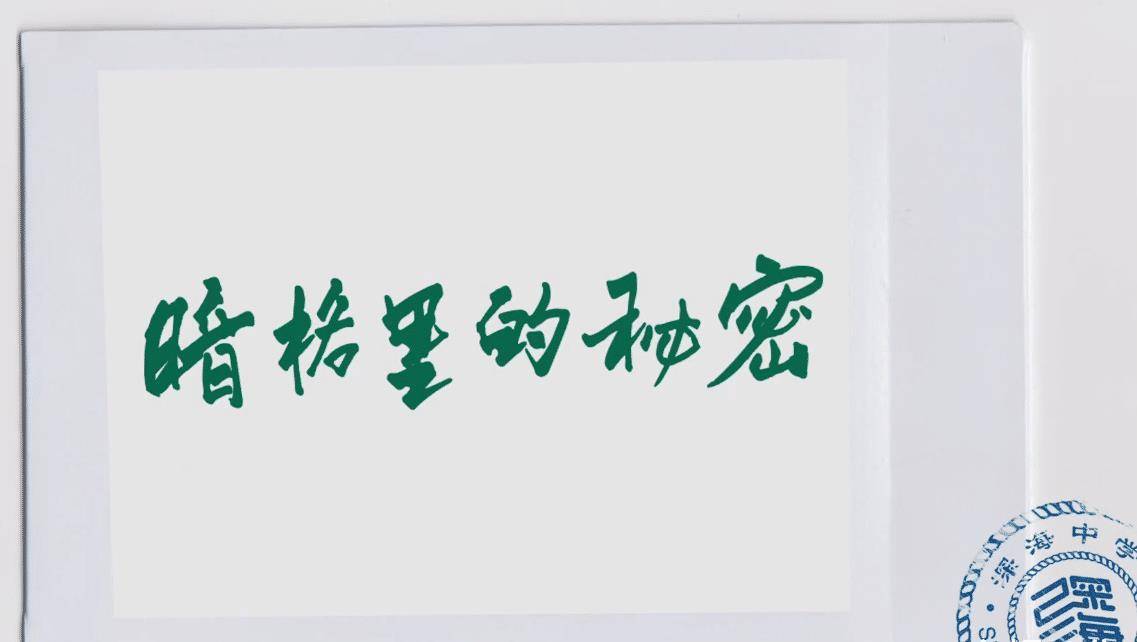 暗格里的秘密
深海中学